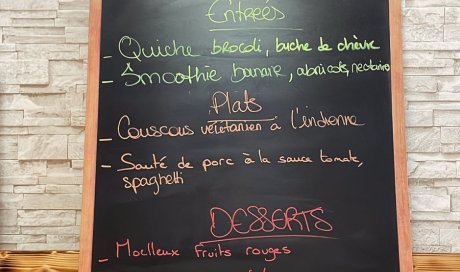 Entrées
- Quiche brocoli, buche de chèvre
- Smoothie banane, abricots, nectarine
Plats
- Couscous végétarien à l'indienne
- Sauté de porc à la sauce tomate,
spaghetti
DESSERTS
- Moelleux fruits rouges